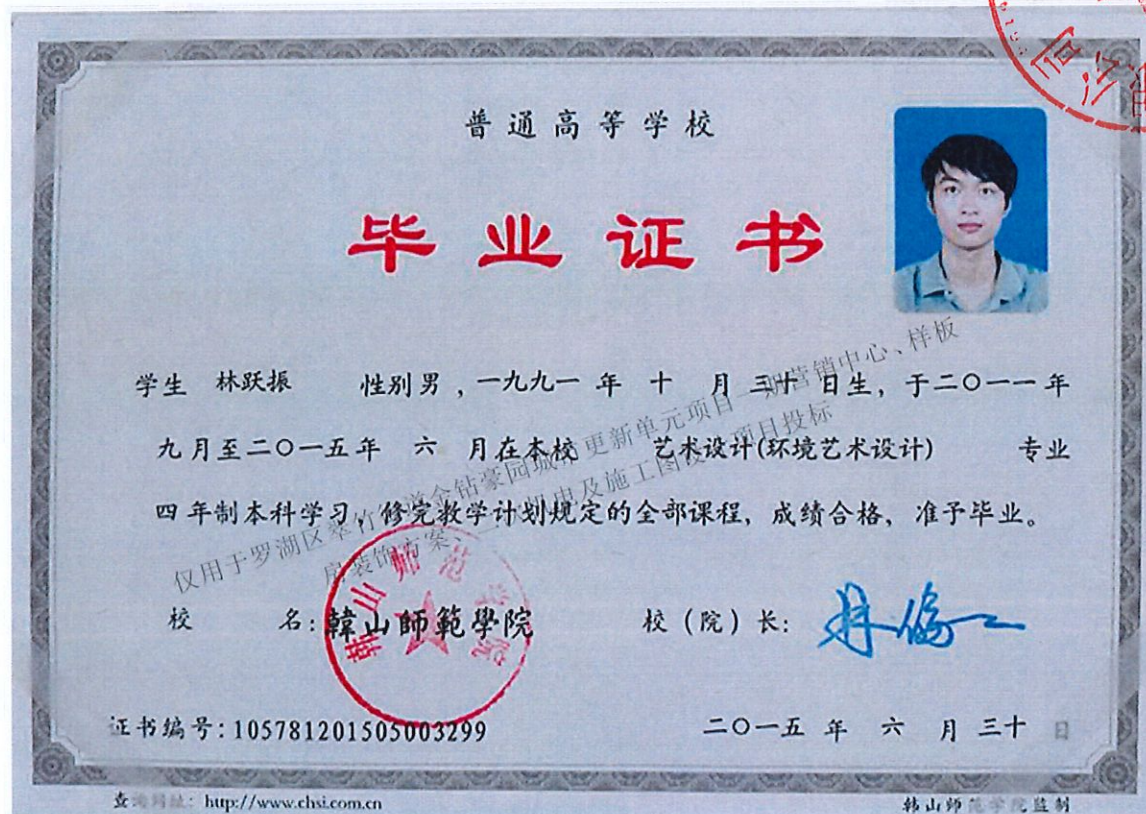 普通高等学校
毕业证书
学生 林跃振 性别男，一九九一 年 十 月 三十 日生，于二〇一一年
九月至二〇一五年 六 月在本校 艺术设计(环境艺术设计) 专业
四 年制本科学习，修完教学计划规定的全部课程，成绩合格，准予毕业。
仅用于罗湖区翠竹街道金钻豪园城市更新单元项目一期营销中心、样板
房装饰方案、机电及施工图设计项目投标
韩山师范学院
校 名：韓山師範學院 校（院）长：
证书编号：105781201505003299 二〇一五 年 六 月 三十 日
查询网址：http://www.chsi.com.cn 韩山师范学院监制